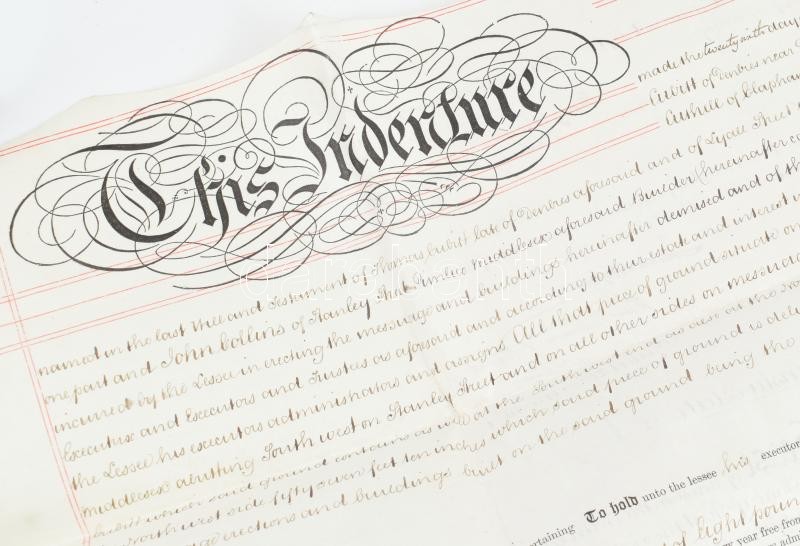 This Indenture
made the twenty sixth day
Cubitt of Denbies near
Cuthill of Clapham
named in the last Will and Testament of Thomas Cubitt late of Denbies aforesaid and of Lyall Street
one part and John Collins of Stanley Street Pimlico Middlesex aforesaid Builder (hereinafter
incurred by the Lessee in erecting the messuage and buildings hereinafter demised and of the
Executrix and Executors and Trustees as aforesaid and according to their estate and interest
the Lessee his executors administrators and assigns All that piece of ground situate on
Middlesex abutting South west on Stanley Street and on all other sides on messuages
Cubitt which said ground contains as well at the South west end as also at the
North west side fifty seven feet ten inches which said piece of ground is
erections and buildings built on the said ground being the
ertaining To hold unto the lessee his executor
of eight poun
year free from